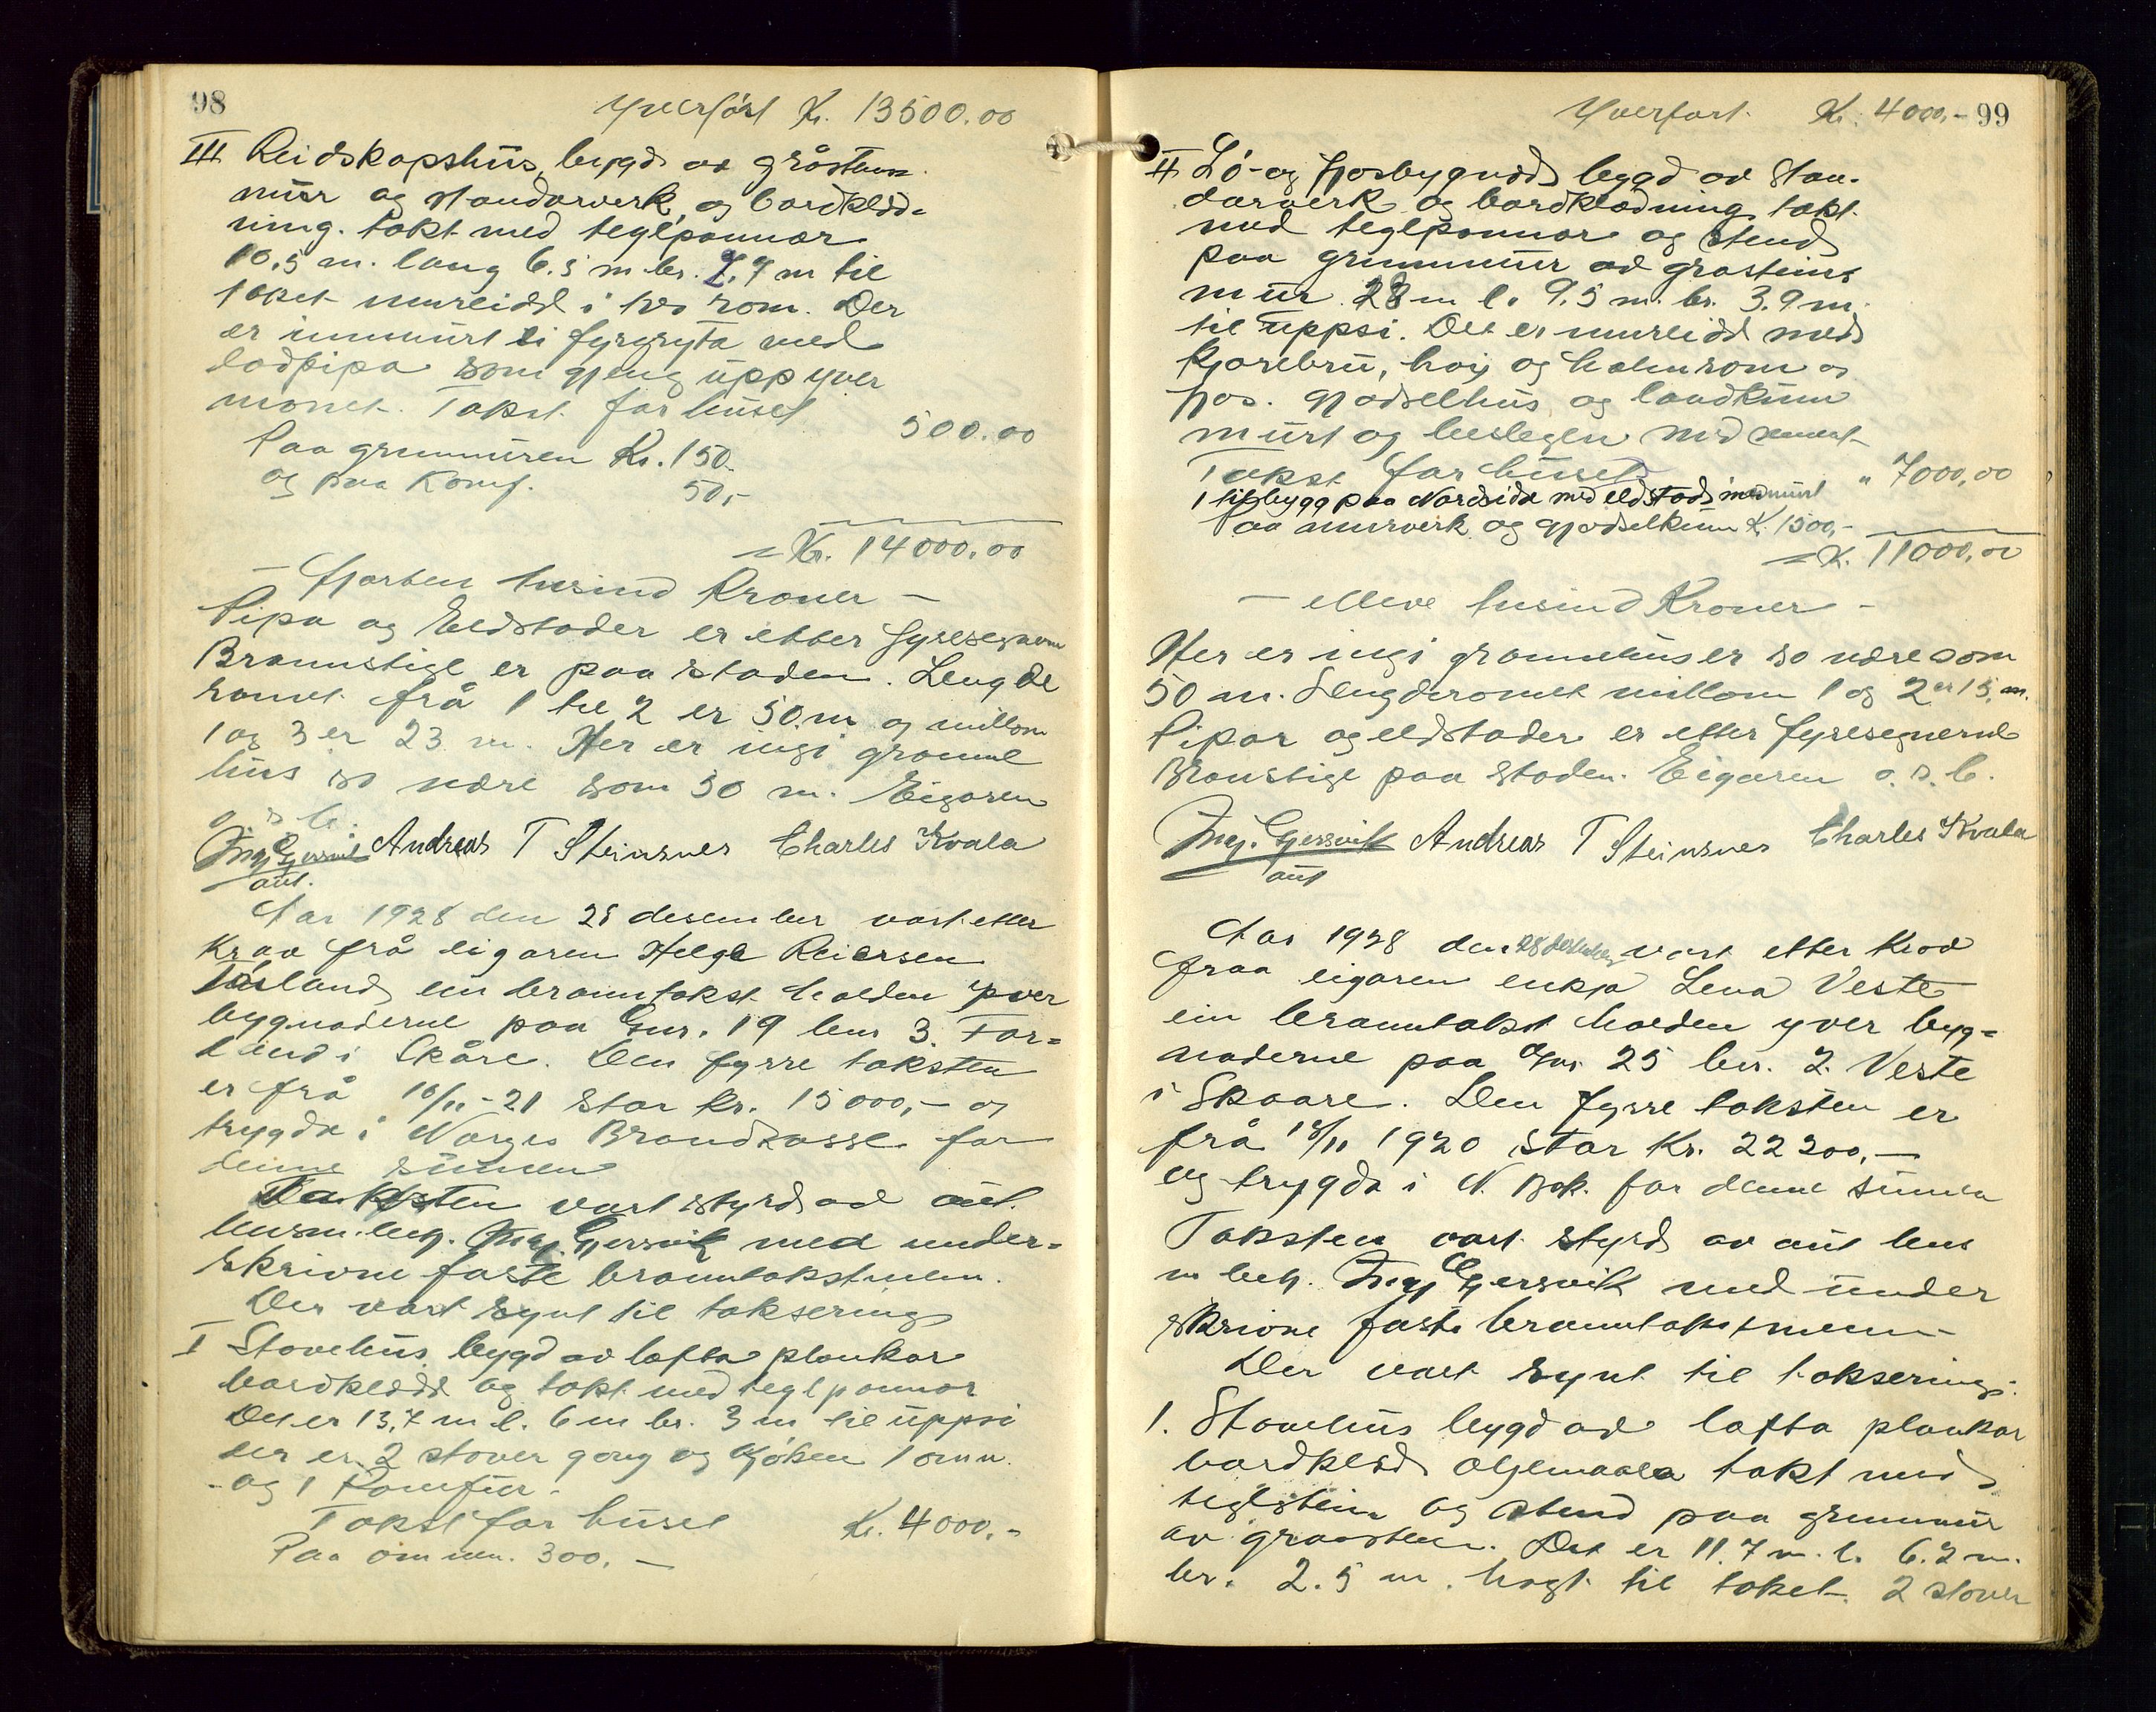 98
Yverført Kr. 13500.00
III Reidskapshus, bygd av gråstens
mur og standarverk og bordklæd-
ning. tekt med teglpannor
10,5 m. lang 6.5 m br. 2,7 m til
taket innreidd i tvo rom. Der
er innmurt ei fyrgryta med
lodpipa som gjeng upp yver
mønet. Takst for huset 500.00
Paa grunnmuren Kr. 150.
og paa komf. 50,-
= Kr. 14000.00
- fjorten tusind Kroner -
Pipa og Eldstader er etter fyresegnerne
Brannstige er paa staden. Lengde
romet frå 1 til 2 er 50 m og millom
1 og 3 er 23 m. Her er ingi granne
hus so nære som 50 m. Eigaren
o. s. b.
Ingj. Gjersvik Andreas T Steinsnes Charles Kvala
aut.
Aar 1928 den 28 desember vart etter
Krav frå eigaren Helge Reiersen
land ein branntakst halden yver
bygnaderne paa Gnr. 19 bnr 3. For=
land i Skåre. Den fyrre taksten
er frå 16/11-21 stor kr. 15000,- og
trygda i Norges Brandkasse for
denne summen
Taksten vart styrd av aut.
lensm.betj. Ingj. Gjersvik med under=
skrivne faste branntakstmenn.
Der vart synt til taksering
I Stovehus bygd av lafta plankar
bordklædd og tekt med teglpannor
Det er 13,7 m l. 6 m br. 3 m til uppsi
der er 2 stover gang og kjøken 1 omn.
og 1 Komfur.
Takst for huset Kr. 4000.-
Paa omnen. 300.-
Yverført. Kr. 4000.- 99
II Lø- og fjosbygnad bygd av stan-
darverk og bordklædning tekt
med teglpannor og stend
paa grunnmur av gråsteins
mur. 28 m l. 9.5 m. br. 3.9 m.
til uppsi. Det er innreidd med
kjørebru, høy og halmrom og
fjos. gjødselhus og landkum
murt og beslegen med sement
Takst for huset " 7000,00
1 tilbygg paa Nordsida med eldstad innmurt
Paa murverk og gjødselkum K. 1500,-
= K. 11000,00
- elleve tusind Kroner -
Her er ingi grannehus er so nære som
50 m. Lengderomet millom 1 og 2 er 15 m.
Pipor og eldstader er etter fyresegnerne
Branstige paa staden. Eigaren o. s. b.
Ingj. Gjersvik Andreas T Steinsnes Charles Kvala
aut
Aar 1928 den 28 desember vart etter krav
fraa eigaren enkja Lena Veste
ein branntakst halden yver byg=
naderne paa Gnr 25 bnr. 2. Veste
i Skaare. Den fyrre taksten er
frå 18/11 1920 stor Kr. 22200,-
og trygda i N. Bok. for denne summen
Taksten vart styrd av aut lens
m betj. Ingj Gjersvik med under
skrivne faste branntakstmenn
Der vart synt til taksering:
1. Stovehus bygd av lafta plankar
bordklædd oljemaala tekt med
teglstein og stend paa grunnmur
av graasten. Det er 11.7 m. l. 6.2 m.
br. 2.5 m. høgt til taket. 2 stover